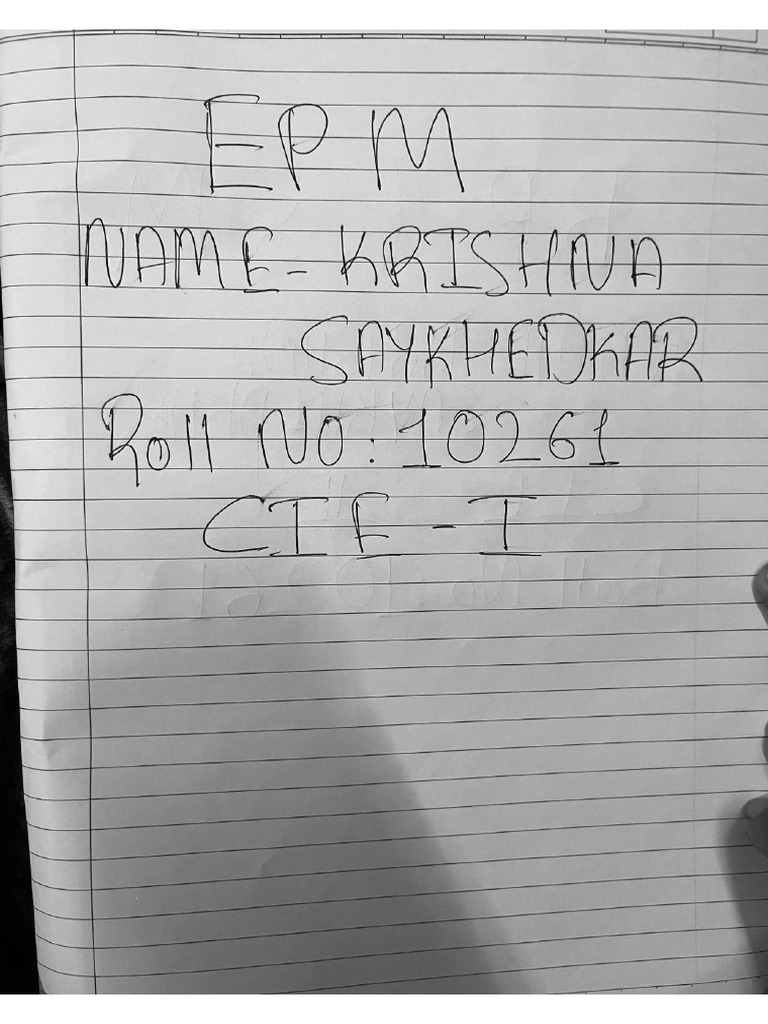 EPM
NAME - KRISHNA
SAYKHEDKAR
Roll NO: 10261
CIE - I